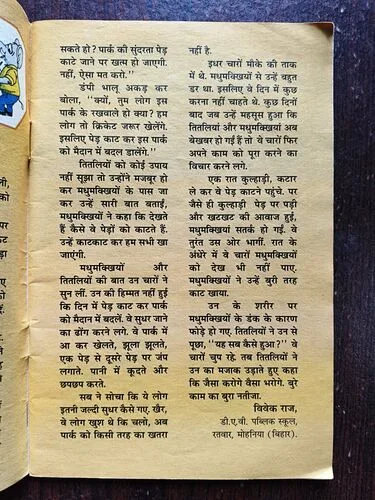 सकते हो? पार्क की सुंदरता पेड़
काटे जाने पर खत्म हो जाएगी.
नहीं, ऐसा मत करो.’’
डंपी भालू अकड़ कर
बोला, ‘‘क्यों, तुम लोग इस
पार्क के रखवाले हो क्या? हम
लोग तो क्रिकेट जरूर खेलेंगे.
इसलिए पेड़ काट कर इस पार्क
को मैदान में बदल डालेंगे.’’
तितलियों को कोई उपाय
नहीं सूझा तो उन्होंने मजबूर हो
कर मधुमक्खियों के पास जा
कर उन्हें सारी बात बताई,
मधुमक्खियों ने कहा कि देखते
हैं कैसे वे पेड़ों को काटते हैं.
उन्हें काटकाट कर हम सभी खा
जाएंगी.
मधुमक्खियों और
तितलियों की बात उन चारों ने
सुन लीं. उन की हिम्मत नहीं हुई
कि दिन में पेड़ काट कर पार्क
को मैदान में बदलें. वे सुधर जाने
का ढोंग करने लगे. वे पार्क में
आ कर खेलते, झूला झूलते,
एक पेड़ से दूसरे पेड़ पर जंप
लगाते. पानी में कूदते और
छपछप करते.
सब ने सोचा कि ये लोग
इतनी जल्दी सुधर कैसे गए. खैर,
वे लोग खुश थे कि चलो, अब
पार्क को किसी तरह का खतरा
नहीं है.
इधर चारों मौके की ताक
में थे. मधुमक्खियों से उन्हें बहुत
डर था. इसलिए वे दिन में कुछ
करना नहीं चाहते थे. कुछ दिनों
बाद जब उन्हें महसूस हुआ कि
तितलियां और मधुमक्खियां अब
बेखबर हो गई हैं तो वे चारों फिर
अपने काम को पूरा करने का
विचार करने लगे.
एक रात कुल्हाड़ी, कटार
ले कर वे पेड़ काटने पहुंचे. पर
जैसे ही कुल्हाड़ी पेड़ पर पड़ी
और खटखट की आवाज हुई,
मधुमक्खियां सतर्क हो गईं. वे
तुरंत उस ओर भागीं. रात के
अंधेरे में वे चारों मधुमक्खियों
को देख भी नहीं पाए.
मधुमक्खियों ने उन्हें बुरी तरह
काट खाया.
उन के शरीर पर
मधुमक्खियों के डंक के कारण
फोड़े हो गए. तितलियों ने उन से
पूछा, ‘‘यह सब कैसे हुआ?’’ वे
चारों चुप रहे. तब तितलियों ने
उन का मजाक उड़ाते हुए कहा
कि जैसा करोगे वैसा भरोगे. बुरे
काम का बुरा नतीजा.
विवेक राज,
डी.ए.वी. पब्लिक स्कूल,
रतवार, मोहनिया (बिहार).